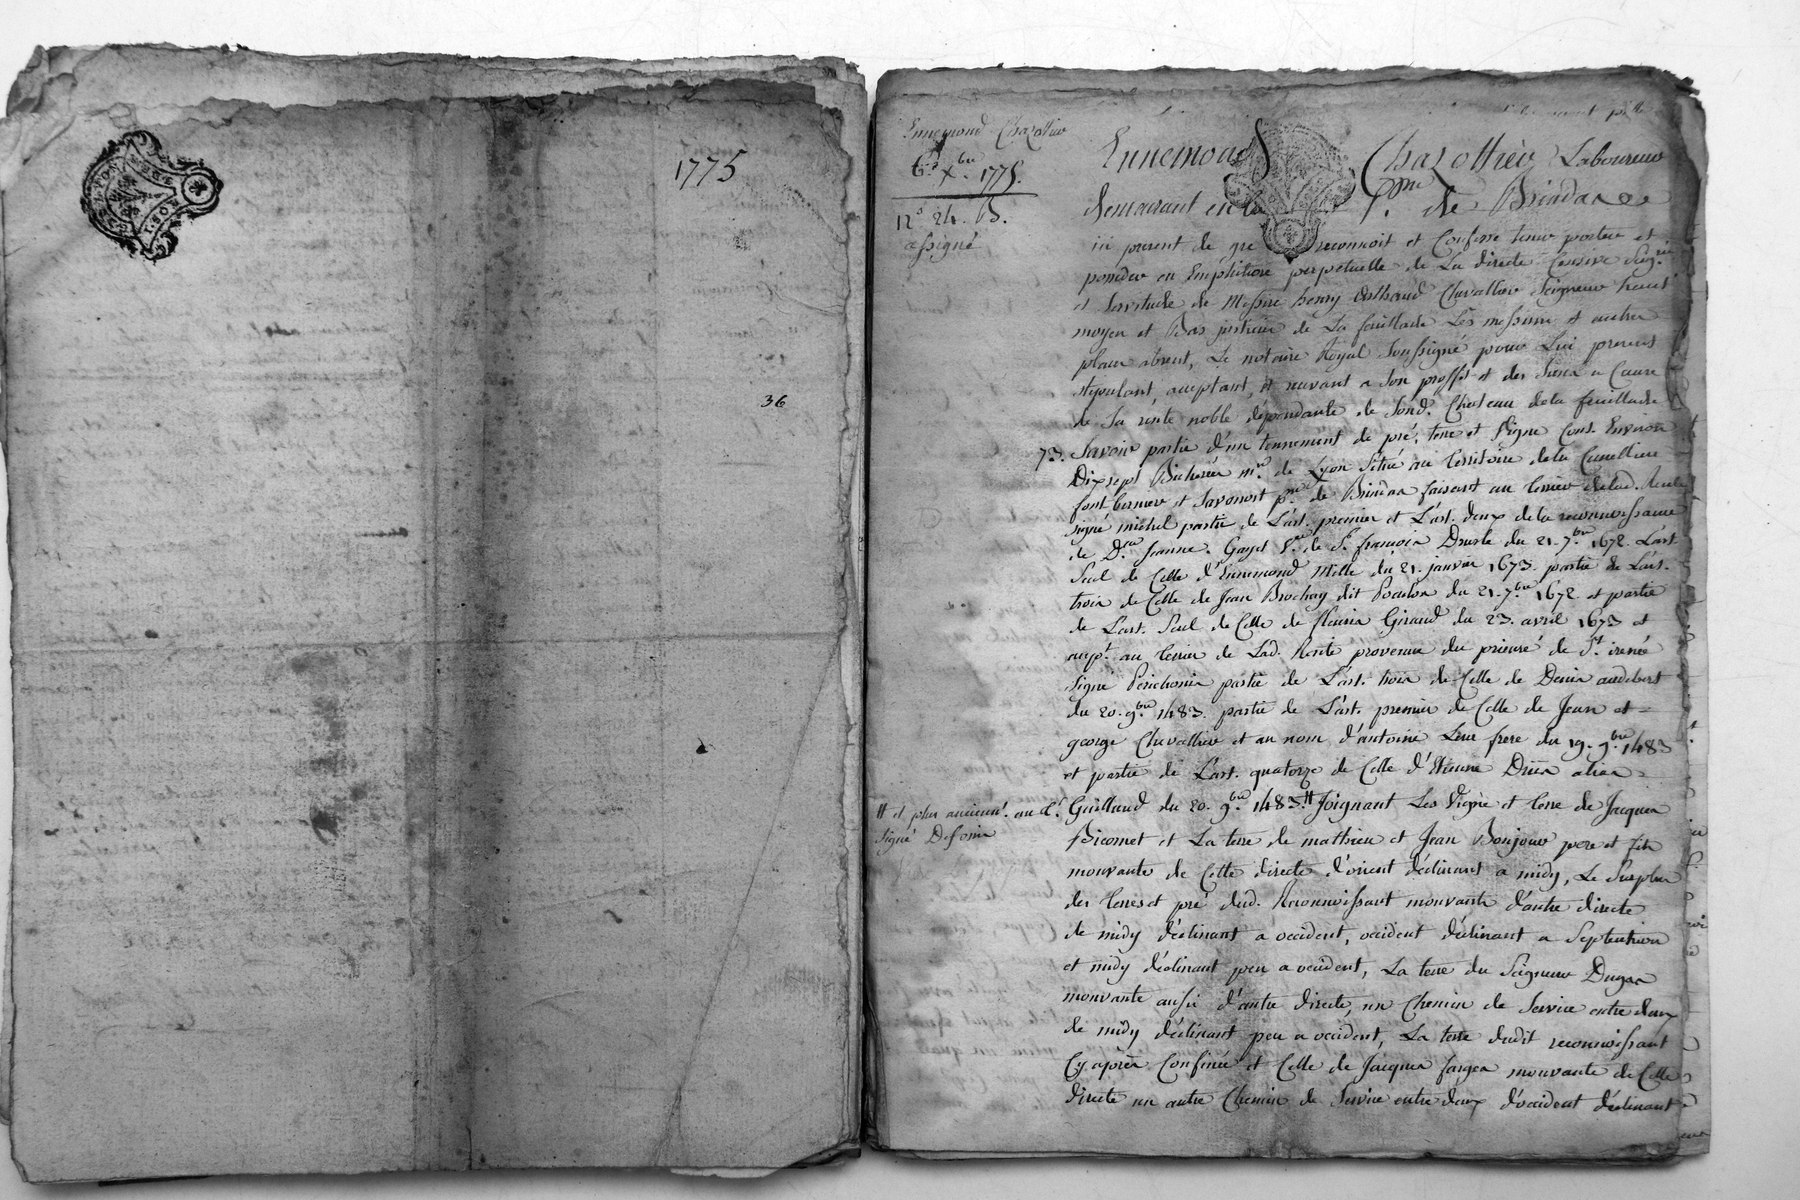 1775
36
Ennemond Chazottier
6.e Xbre 1775.
n.o 24. B.
assigné
Ennemond Chazottier Laboureur
demeurant en la p.sse de Brindas
ici present de gre reconnoit et Confesse tenir porter et
posseder en Emphiteose perpetuelle de La directe Censive Seig.rie
et Servitude de Messire henry Chevallier Seigneur haut
moyen et Bas justicier de La feuillade Les messimy et autres
places absent, Le notaire Royal Soussigné pour Lui present
stipulant, acceptant, et recevant a Son proffit et des Siens a Cause
de Sa rente noble dépendante de Sond. Chateau de la feuillade
73. Savoir partie d'un tennement de pré, terre et Vigne Cont. Environ
Dix sept Bicherées m.re de Lyon Situé au territoire de la
et Savonost p.sse de Brindas faisant au terrier de lad. Rente
signé michel partie de L'art. premier et L'art. deux de la reconnoissance
de D.lle Jeanne Gayet V.ve de S.r françois du 21. 7.bre 1672. L'art.
Seul de Celle d'Ennemond Mille du 21. janvier 1673. partie de L'art.
trois de Celle de Jean Brochay dit du 21. 7.bre 1672. et partie
de L'art. Seul de Celle de fleurie Giraud du 23. avril 1673 et
au terrier de Lad. Rente provenue du prieuré de S.t irenée
signé partie de L'art. trois de Celle de Denis audebert
du 20. 9.bre 1483. partie de L'art. premier de Celle de Jean et =
george Chevallier et au nom d'antoine Leur frere du 19. 9.bre 1483
et partie de L'art. quatorze de Celle d'Etienne alias =
Guilland du 20. 9.bre 1483. # Joignant Les Vigne et terre de Jacques
# et plus ancienn.t au
signé
Bicornet et La terre de mathieu et Jean Bonjour pere et fils
mouvante de Cette directe d'orient déclinant a midy, Le Surplus
des terres et pré dud. Reconnoissant mouvants d'autre directe
de midy déclinant a occident, occident déclinant a Septentrion
et midy déclinant peu a occident, La terre du Seigneur Dugas
mouvante aussi d'autre directe, un Chemin de Service entre deux
de midy déclinant peu a occident, La terre dudit reconnoissant
Cy après Confinée et Celle de Jacques farges mouvante de Cette
directe un autre Chemin de Service entre deux d'occident déclinant